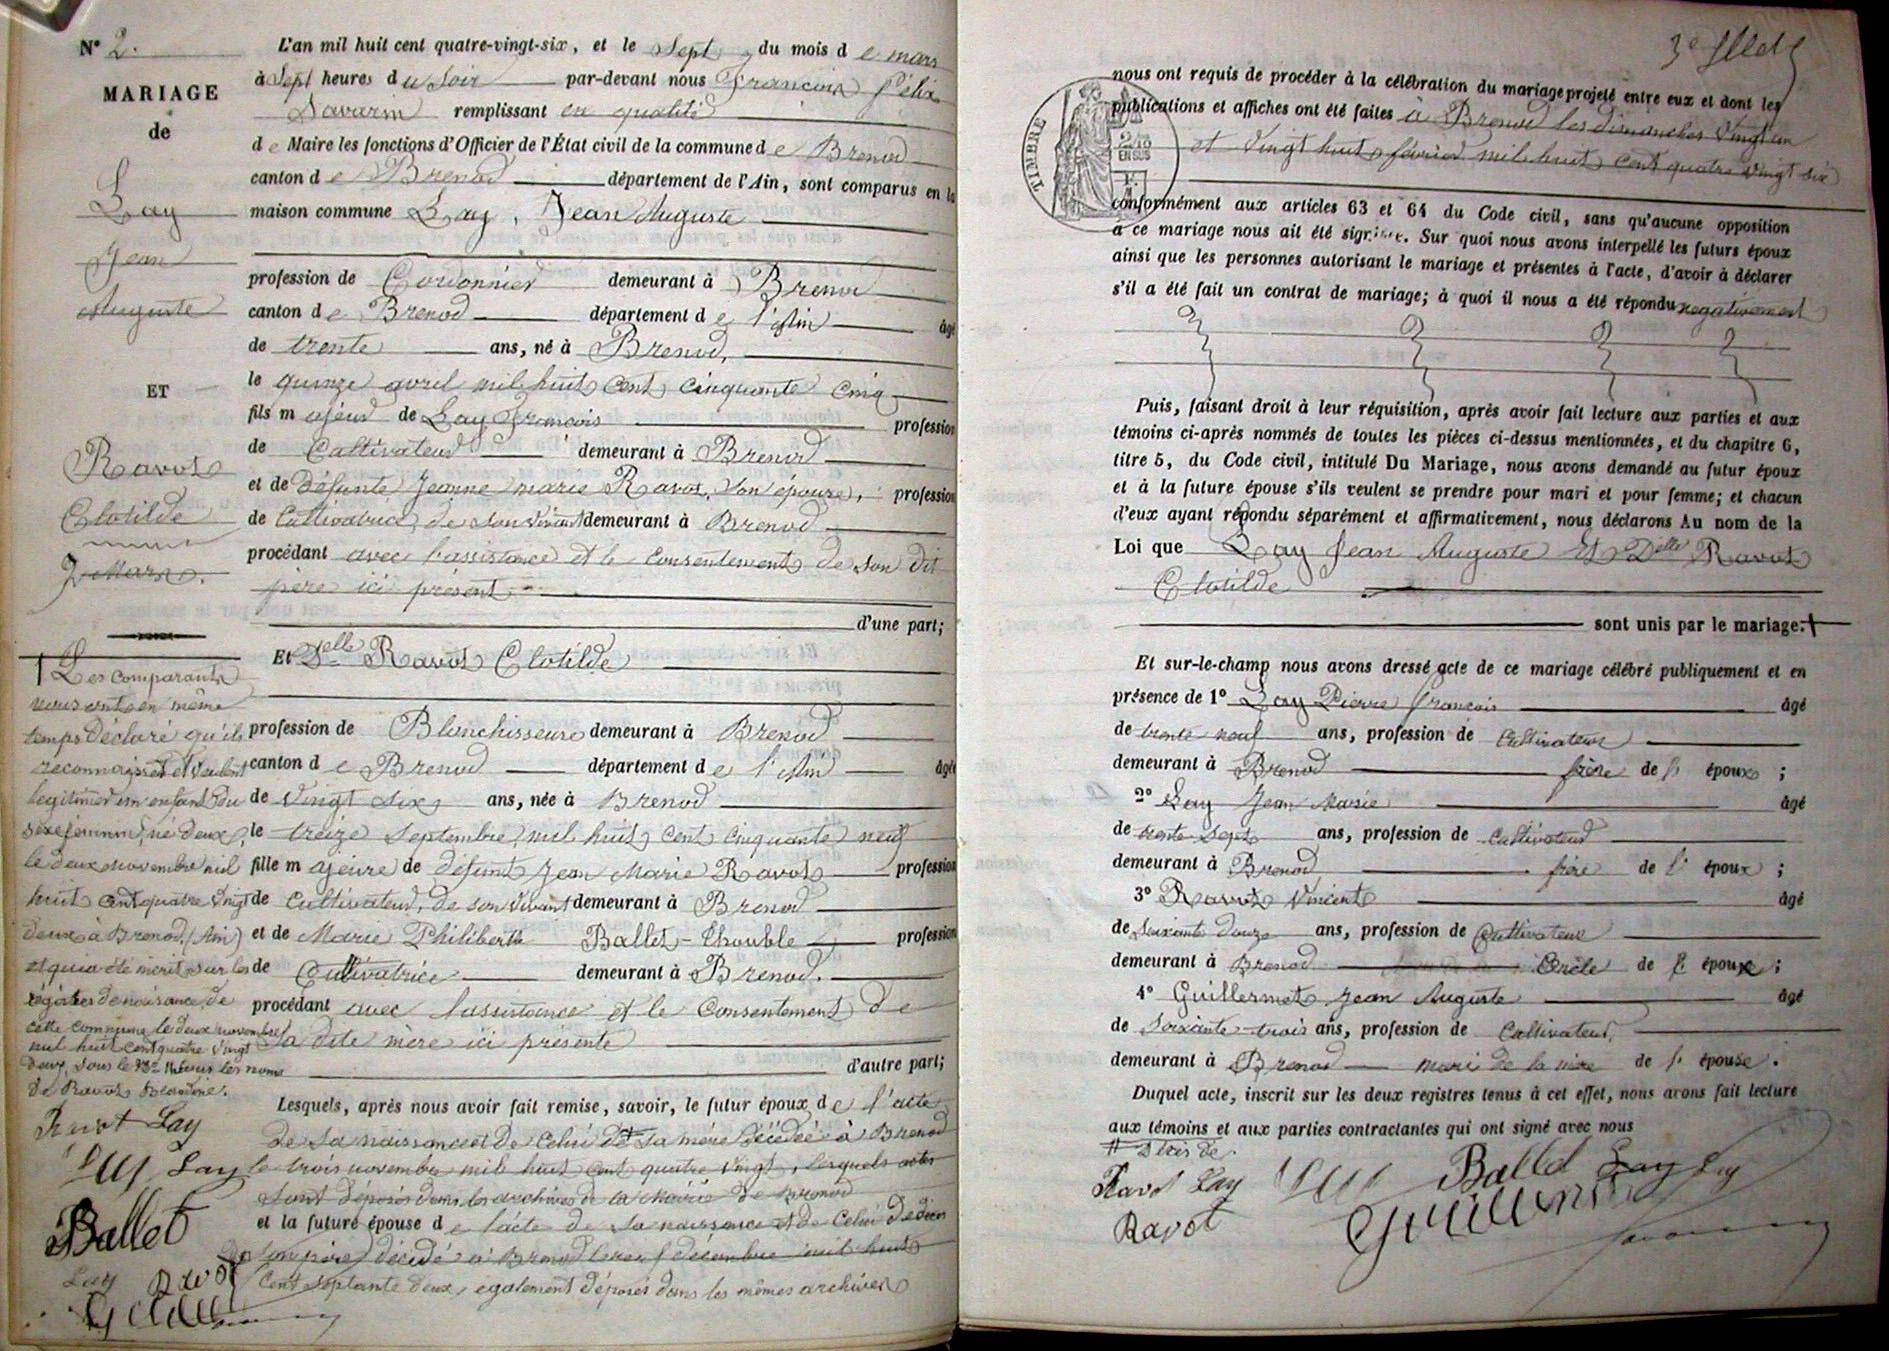 N° 2.
MARIAGE
de
Lay
Jean
Auguste
ET
Ravot
Clotilde
7 Mars.
L'an mil huit cent quatre-vingt-six, et le Sept du mois de mars
à Sept heures du Soir par-devant nous François Félix
Savarin remplissant en qualité
de Maire les fonctions d'Officier de l'État civil de la commune de Brenod
canton de Brenod département de l'Ain, sont comparus en la
maison commune Lay, Jean Auguste
profession de Cordonnier demeurant à Brenod
canton de Brenod département de l'Ain âgé
de trente ans, né à Brenod,
le quinze avril mil huit cent cinquante cinq
fils majeur de Lay François profession
de Cultivateur demeurant à Brenod
et de défunte Jeanne marie Ravot, son épouse, profession
de Cultivatrice, de son vivant demeurant à Brenod
procédant avec l'assistance et le consentement de son dit
père ici présent
d'une part;
Et Delle Ravot Clotilde
profession de Blanchisseuse demeurant à Brenod
canton de Brenod département de l'Ain âgée
de vingt six ans, née à Brenod
le treize Septembre mil huit cent cinquante neuf
fille majeure de défunt Jean Marie Ravot profession
de Cultivateur, de son vivant demeurant à Brenod
et de Marie Philiberte Ballet-Thouble profession
de Cultivatrice demeurant à Brenod.
procédant avec l'assistance et le Consentement de
Sa dite mère ici présente
d'autre part;
Lesquels, après nous avoir fait remise, savoir, le futur époux de l'acte
de sa naissance et de celui de sa mère décédée à Brenod
le trois novembre mil huit cent quatre vingt, lesquels actes
sont déposés dans les archives de la Mairie de Brenod
et la future épouse de l'acte de sa naissance et de celui de décès
de son père décédé à Brenod le neuf décembre mil huit
cent septante deux, également déposés dans les mêmes archives
† Les comparants
nous ont en même
temps déclaré qu'ils
reconnaissent et veulent
légitimer un enfant du
sexe féminin, né d'eux,
le deux novembre mil
huit cent quatre vingt
deux à Brenod (Ain)
et qui a été inscrit sur les
régistres de naissance de
cette commune le deux novembre
mil huit cent quatre vingt
deux, sous le les noms
de Ravot Blandine.
Ravot Lay
Lay
Ballet
Lay Ravot
3e
TIMBRE
2/10
EN SUS
nous ont requis de procéder à la célébration du mariage projeté entre eux et dont les
publications et affiches ont été faites à Brenod les dimanches vingt un
et vingt huit février mil huit cent quatre vingt six
conformément aux articles 63 et 64 du Code civil, sans qu'aucune opposition
à ce mariage nous ait été signifiée. Sur quoi nous avons interpellé les futurs époux
ainsi que les personnes autorisant le mariage et présentes à l'acte, d'avoir à déclarer
s'il a été fait un contrat de mariage; à quoi il nous a été répondu négativement
Puis, faisant droit à leur réquisition, après avoir fait lecture aux parties et aux
témoins ci-après nommés de toutes les pièces ci-dessus mentionnées, et du chapitre 6,
titre 5, du Code civil, intitulé Du Mariage, nous avons demandé au futur époux
et à la future épouse s'ils veulent se prendre pour mari et pour femme; et chacun
d'eux ayant répondu séparément et affirmativement, nous déclarons Au nom de la
Loi que Lay Jean Auguste Et Delle Ravot
Clotilde
sont unis par le mariage. †
Et sur-le-champ nous avons dressé acte de ce mariage célébré publiquement et en
présence de 1° Lay Pierre François âgé
de trente neuf ans, profession de Cultivateur
demeurant à Brenod frère de l' époux ;
2° Lay Jean Marie âgé
de trente sept ans, profession de Cultivateur
demeurant à Brenod frère de l' époux ;
3° Ravot Vincent âgé
de Soixante douze ans, profession de Cultivateur
demeurant à Brenod Oncle de l' épouse ;
4° Guillermet Jean Auguste âgé
de Soixante trois ans, profession de Cultivateur,
demeurant à Brenod mari de la mère de l' épouse .
Duquel acte, inscrit sur les deux registres tenus à cet effet, nous avons fait lecture
aux témoins et aux parties contractantes qui ont signé avec nous
# Décès de.
Ravot Lay Ballet Lay Lay
Ravot Guillermet